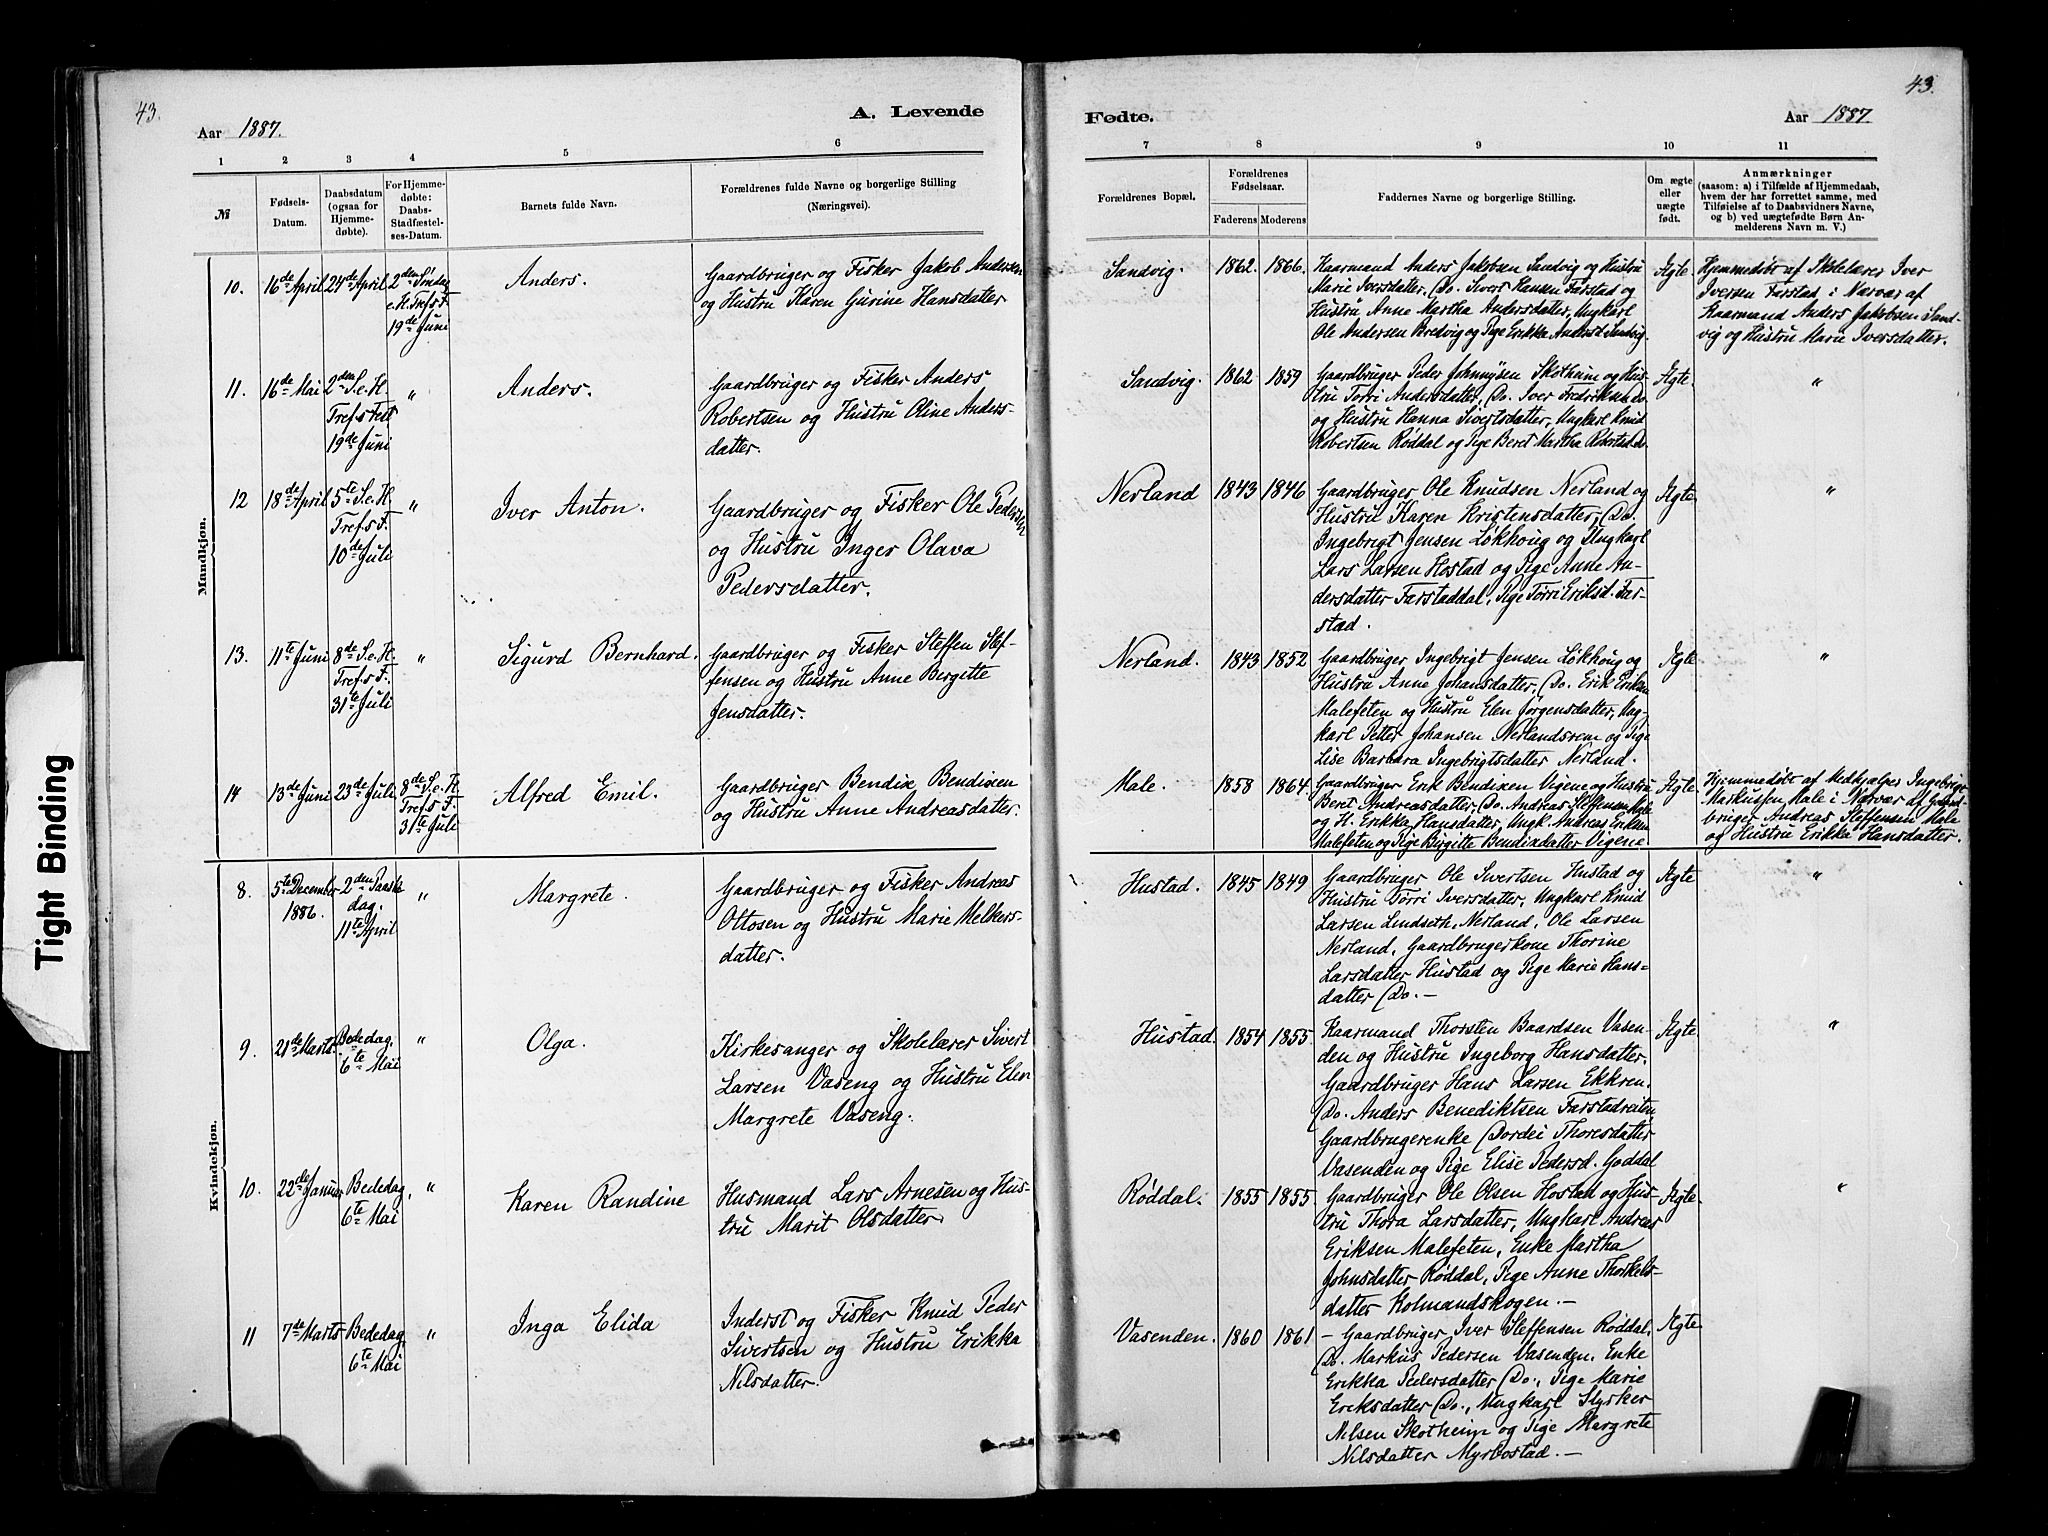 43.
Aar 1887.
A. Levende
1 2 3 4 5 6
№
Fødsels-
Datum.
Daabsdatum
(ogsaa for
Hjemme-
døbte).
For Hjemme-
døbte:
Daabs-
Stadfæstel-
ses-Datum.
Barnets fulde Navn.
Forældrenes fulde Navne og borgerlige Stilling
(Næringsvei).
Mandkjøn.
10. 16de April 24de April 2den Søndag
e. H. Tref. s F.
19de Juni
Anders.
Gaardbruger og Fisker Jakob Andersen
og Hustru Karen Gurine Hansdatter
11. 16de Mai 2den S. e. H. "
Tref. s Fest
19de Juni
Anders.
Gaardbruger og Fisker Anders
Robertsen og Hustru Oline Anders-
datter.
12 18de April 5te S. e. H. "
Tref. s F.
10de Juli
Iver Anton.
Gaardbruger og Fisker Ole Pedersen
og Hustru Inger Olava
Pedersdatter.
13. 11te Juni 8de S. e. H. "
Tref. s F.
31te Juli
Sigurd Bernhard.
Gaardbruger og Fisker Steffen Stef-
fensen og Hustru Anne Birgitte
Jensdatter.
14 13de Juni 23de Juli 8de S. e. H.
Tref. s F.
31te Juli
Alfred Emil.
Gaardbruger Bendix Bendixen
og Hustru Anne Andreasdatter.
Kvindekjøn.
8. 5te December 2den Paaske "
1886. dag.
11te April
Margrete.
Gaardbruger og Fisker Andreas
Ottosen og Hustru Marie Melkers-
datter.
9. 21de Marts Bededag, "
6te Mai
Olga.
Kirkesanger og Skolelærer Sivert
Larsen Vaseng og Hustru Elen
Margrete Vaseng.
10. 22de Januar Bededag, "
6te Mai
Karen Randine
Husmand Lars Arnesen og Hus-
tru Marit Olsdatter
11 7de Marts Bededag, "
6te Mai
Inga Elida
Inderst og Fisker Knud Peder
Sivertsen og Hustru Erikka
Nilsdatter.
43.
Fødte.
Aar 1887.
7 8 9 10 11
Forældrenes Bopæl.
Forældrenes
Fødselsaar.
Faderens Moderens
Faddernes Navne og borgerlige Stilling.
Om ægte
eller
uægte
født.
Anmærkninger
(saasom: a) i Tilfælde af Hjemmedaab,
hvem der har forrettet samme, med
Tilføielse af to Daabsvidners Navne,
og b) ved uægtefødte Børn An-
melderens Navn m. V.)
Sandvig. 1862. 1866.
Kaarmand Anders Jakobsen Sandvig og Hustru
Marie Iversdatter, Do. Sivert Hansen Farstad og
Hustru Anne Martha Andersdatter, Ungkarl
Ole Andersen Bredvig og Pige Erikka Andersd. Sandvig.
Ægte
Hjemmedøbt af Skolelærer Iver
Iversen Farstad i Nærvær af
Kaarmand Anders Jakobsen Sand-
vig og Hustru Marie Iversdatter.
Sandvig. 1862 1859
Gaardbruger Peder Johnnysen Skotheim og Hus-
tru Torri Andersdatter, Do. Iver Fredriksen Do
og Hustru Hanna Sivertsdatter, Ungkarl Knud
Robertsen Røddal og Pige Beret Martha Robertsd. Do.
Ægte. "
Nerland 1843 1846
Gaardbruger Ole Knudsen Nerland og
Hustru Karen Kristensdatter, Do.
Ingebrigt Jensen Løkhoug og Ungkarl
Lars Larsen Hostad og Pige Anne An-
dersdatter Farstaddal, Pige Torri Eriksd. Far-
stad.
Ægte "
Nerland. 1843 1852
Gaardbruger Ingebrigt Jensen Løkhoug og
Hustru Anne Johansdatter, Do. Erik Eriksen
Malefeten og Hustru Elen Jørgensdatter, Ung-
karl Petter Johansen Nerlandsrem og Pige
Lise Barbara Ingebrigtsdatter Nerland.
Ægte "
Male. 1858 1864
Gaardbruger Erik Bendixen Vigene og Hustru
Beret Andreasdatter, Do. Andreas Steffensen Male
og H. Erikka Hansdatter, Ungk. Andreas Eriksen
Malefeten og Pige Birgitte Bendixdatter Vigene
Ægte
Hjemmedøbt af Medhjælper Ingebrigt
Markussen Male i Nærvær af Gaard-
bruger Andreas Steffensen Male
og Hustru Erikka Hansdatter.
Hustad. 1845 1849
Gaardbruger Ole Sivertsen Hustad og
Hustru Torri Iversdatter, Ungkarl Knud
Larsen Lindseth, Nerland, Ole Larsen
Nerland, Gaardbrugerkone Thorine
Larsdatter Hustad og Pige Marie Hans-
datter Do. —
Ægte "
Hustad. 1854 1855
Kaarmand Thorsten Baardsen Vasen-
den og Hustru Ingeborg Hansdatter,
Gaardbruger Hans Larsen Ekkren.
Do. Anders Benediktsen Farstadreiten
Gaardbrugerenke Dordei Thoresdatter
Vasenden og Pige Elise Pedersd. Goddal
Ægte. "
Røddal. 1855 1855
Gaardbruger Ole Olsen Hostad og Hus-
tru Thora Larsdatter, Ungkarl Andreas
Eriksen Malefeten, Enke Martha
Johnsdatter Røddal, Pige Anne Thorkels-
datter Kolmandskogen. —
Ægte. "
Vasenden. 1860 1861
— Gaardbruger Iver Steffensen Røddal,
Do. Markus Pedersen Vasenden, Enke
Erikka Pedersdatter Do., Pige Marie
Eriksdatter Do., Ungkarl Styrker
Nilsen Skotheim og Pige Margrete
Nilsdatter Myrbostad. —
Ægte.
Tight Binding